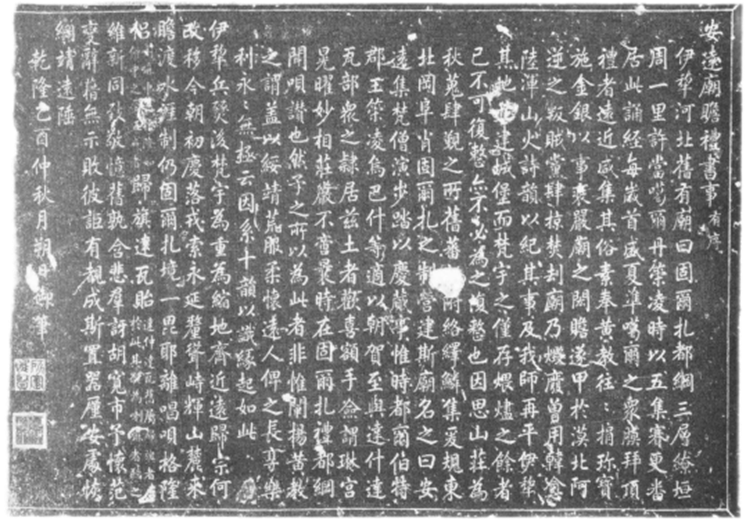 安遠廟瞻禮書事有序
伊犂河北舊有廟曰固爾扎都綱三層繚垣
周一里許當噶爾丹策凌時以五集賽更番
居此誦經每歲首盛夏準噶爾之衆膜拜頂
禮者遠近咸集其俗素奉黃教往〻捐珍寶
施金銀以事莊嚴廟之閎瞻遂甲於漠北阿
逆之叛賊黨肆掠焚刦廟乃燬廢曾用韓愈
陸渾山火詩韻以紀其事及我師再平伊犂
其地建城堡而梵宇之僅存煨燼之餘者
已不可復整亦不必為之復整也因思山莊為
秋蒐肆覲之所舊蕃新附絡繹鱗集爰規東
北岡阜肖固爾扎之制營建斯廟名之曰安
遠集梵僧演步踏以慶蕆事惟時都爾伯特
郡王策凌烏巴什等適以朝賀至與達什達
瓦部衆之隷居茲土者歡喜額手僉謂琳宮
晃曜妙相莊嚴不啻曩時在固爾扎禮都綱
聞唄讚也然予之所以為此者非惟闡揚黃教
之謂蓋以綏靖荒服柔懷遠人俾之長享樂
利永〻無極云因系十韻以識緣起如此
伊犂兵燹後梵宇為重為緬地齊近遠歸宗何
改移今朝初慶落戎索永延釐聳峙輝山麓來
瞻渡水涯制仍固爾扎境一毘耶離唱唄格隆
侣歸旗達瓦貽
維新同教教憶舊執含悲羣訝胡寬市予懷范
燮辭藉無示敗彼詎有靦成斯置器安處
綢遠陲
乾隆乙酉仲秋月朔日御筆